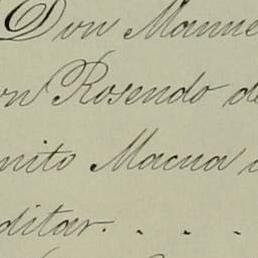 Don Manue
on Rosendo de
nito Macua
ditar. . . .